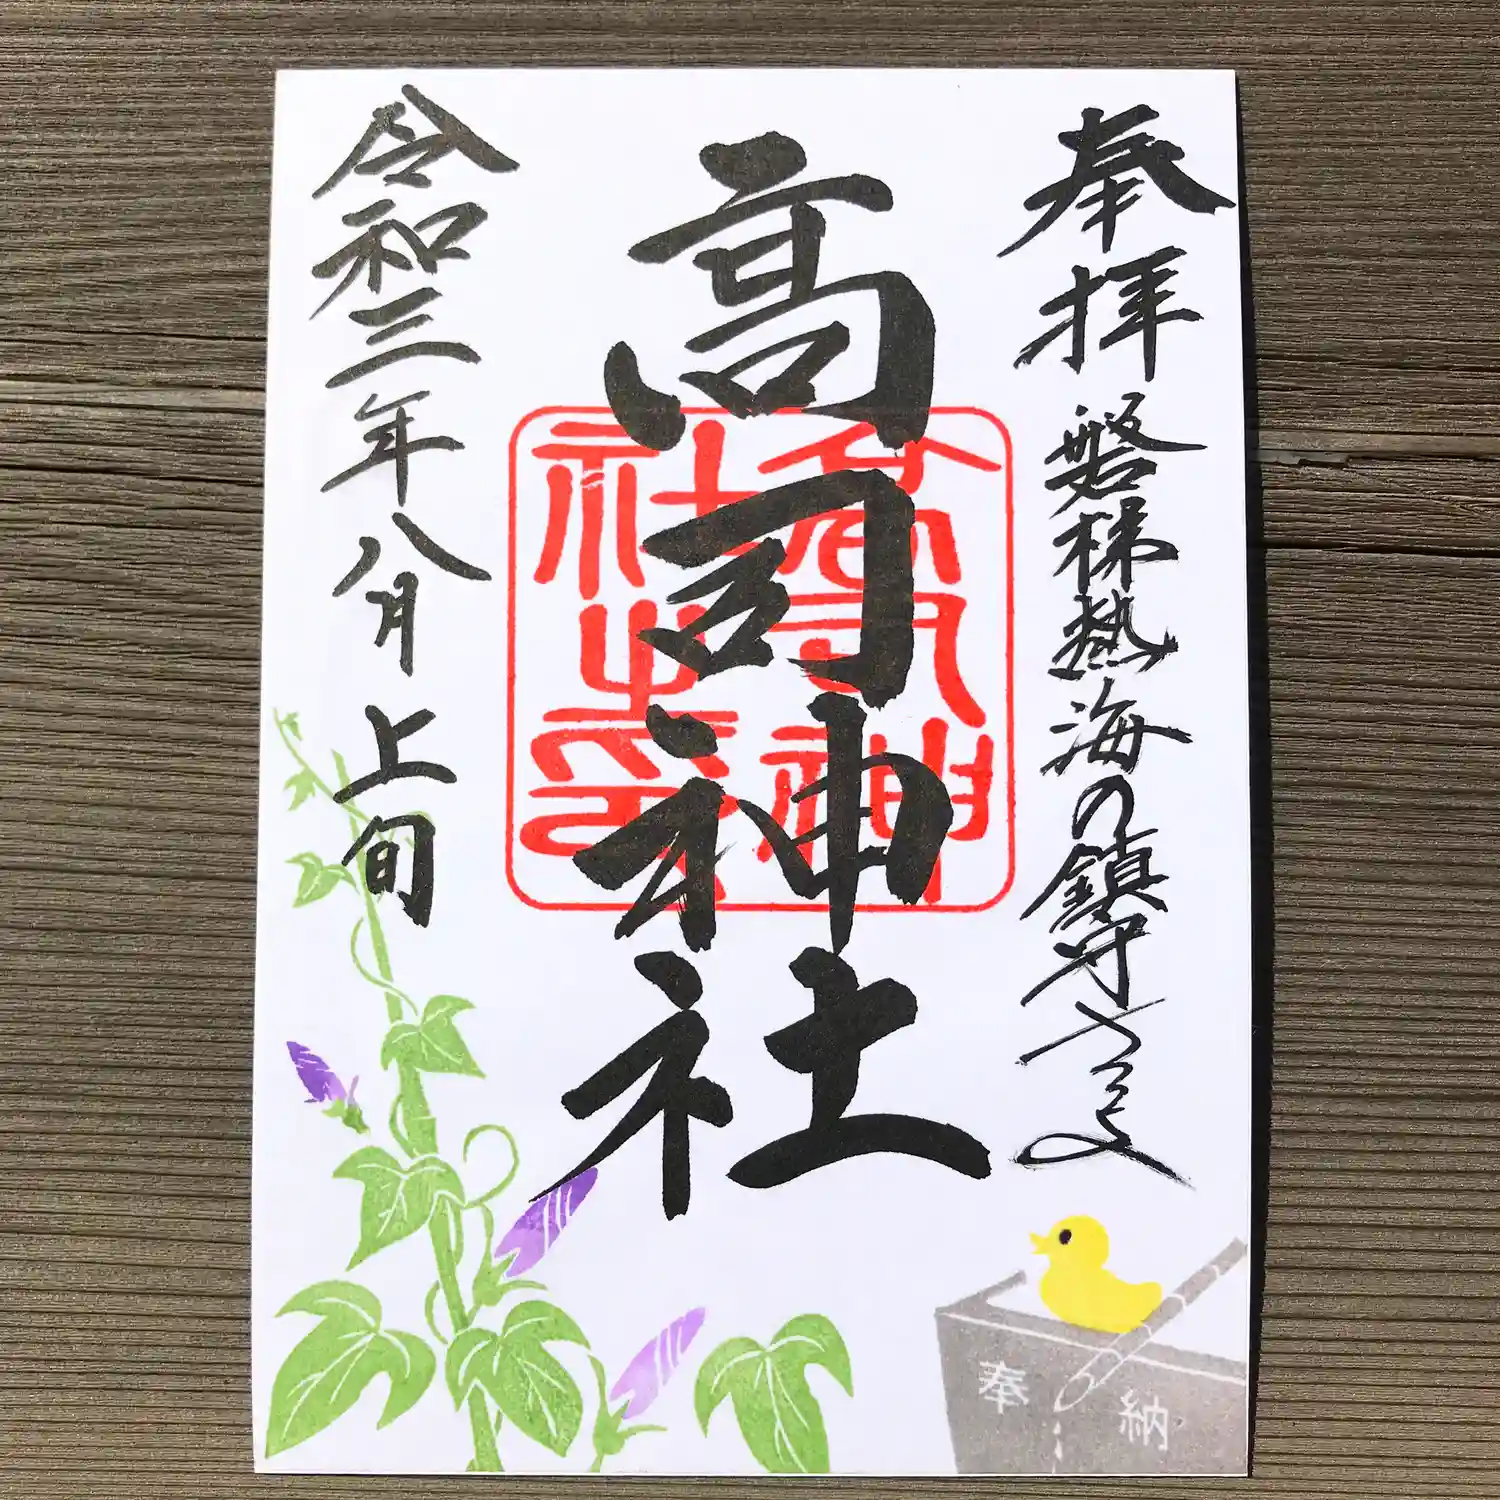 奉拝
磐梯熱海の鎮守さま
高司神社
令和三年八月上旬
高司神
社之印
奉納